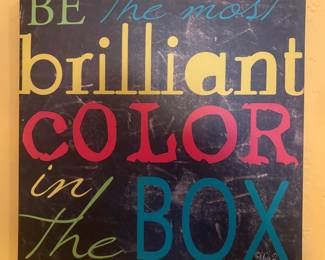 BE the most
brilliant
COLOR
in
the BOX